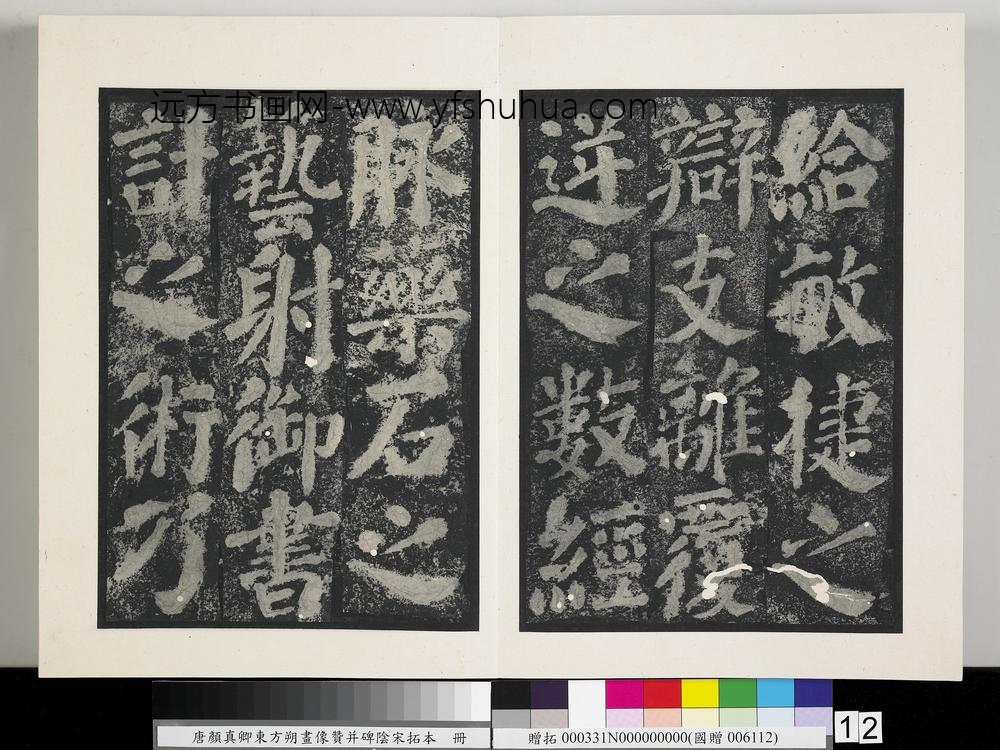 远方书画网-www.yfshuhua.com
給敏捷之
辯支離覆
逆之數經
脈藥石之
藝射御書
計之術乃
唐顏真卿東方朔畫像贊并碑陰宋拓本 冊
贈拓 000331N000000000(國贈 006112)
12